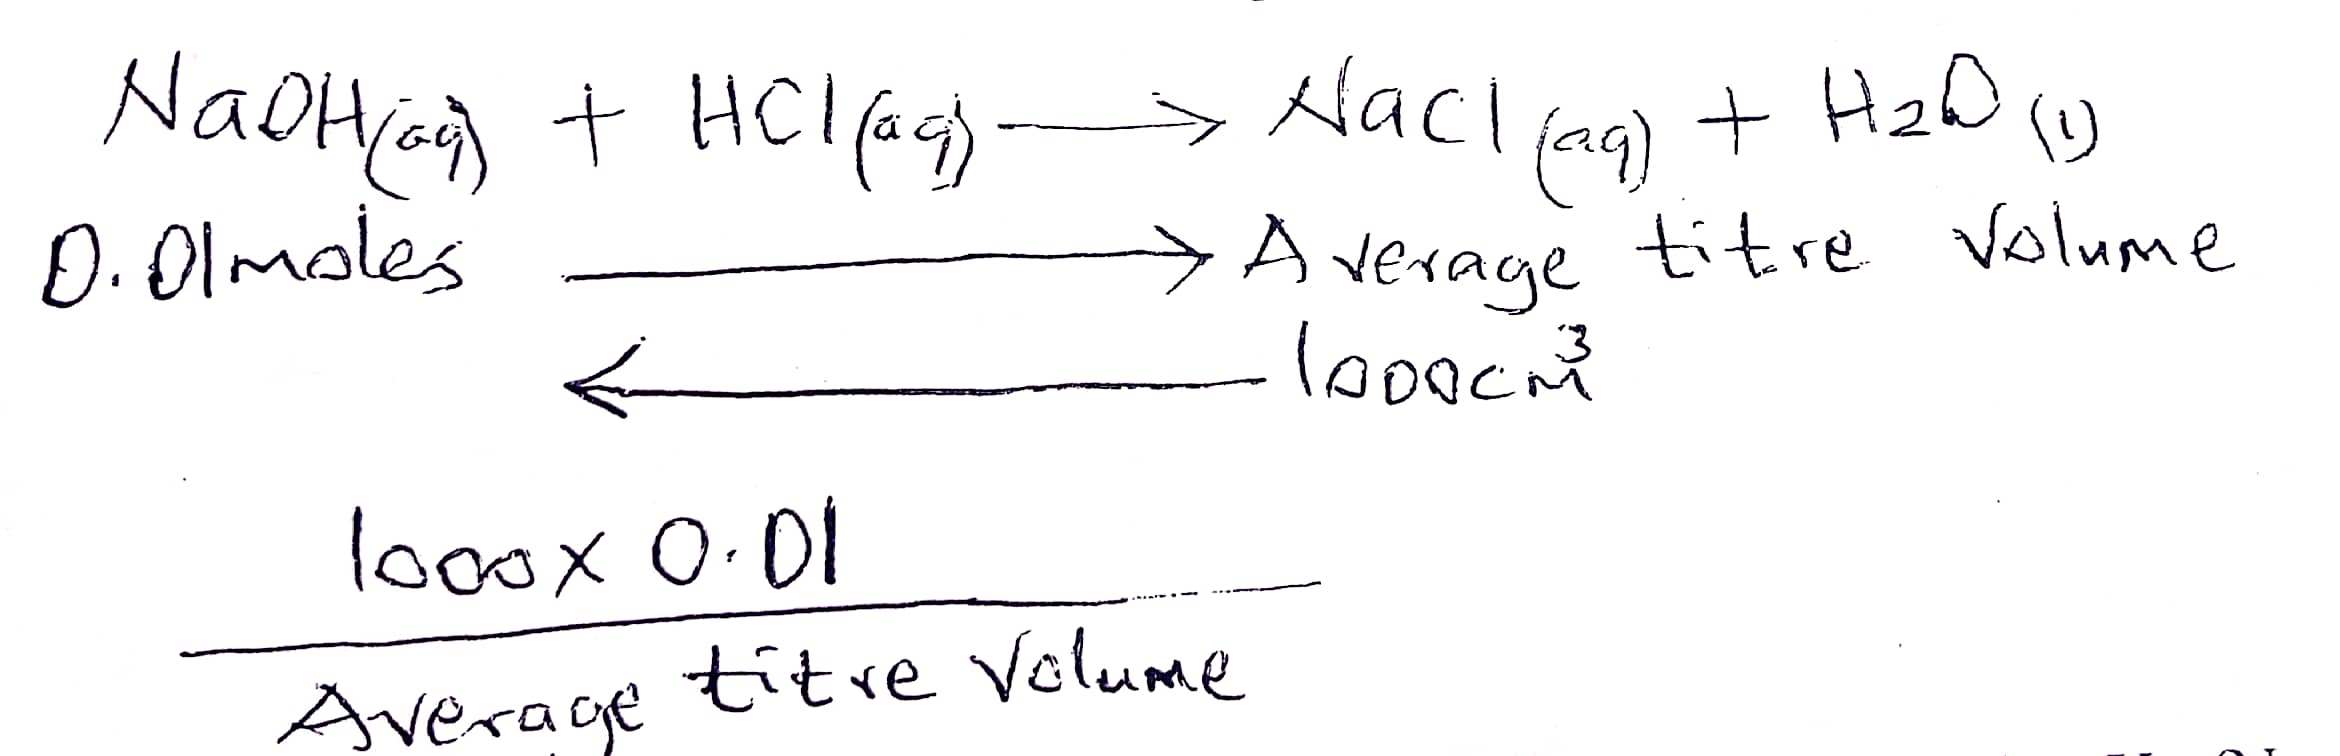 NaOH(aq) + HCl(aq) → NaCl(aq) + H2O(l)
0.01moles → Average titre volume
← 1000cm³
1000 x 0.01
Average titre volume